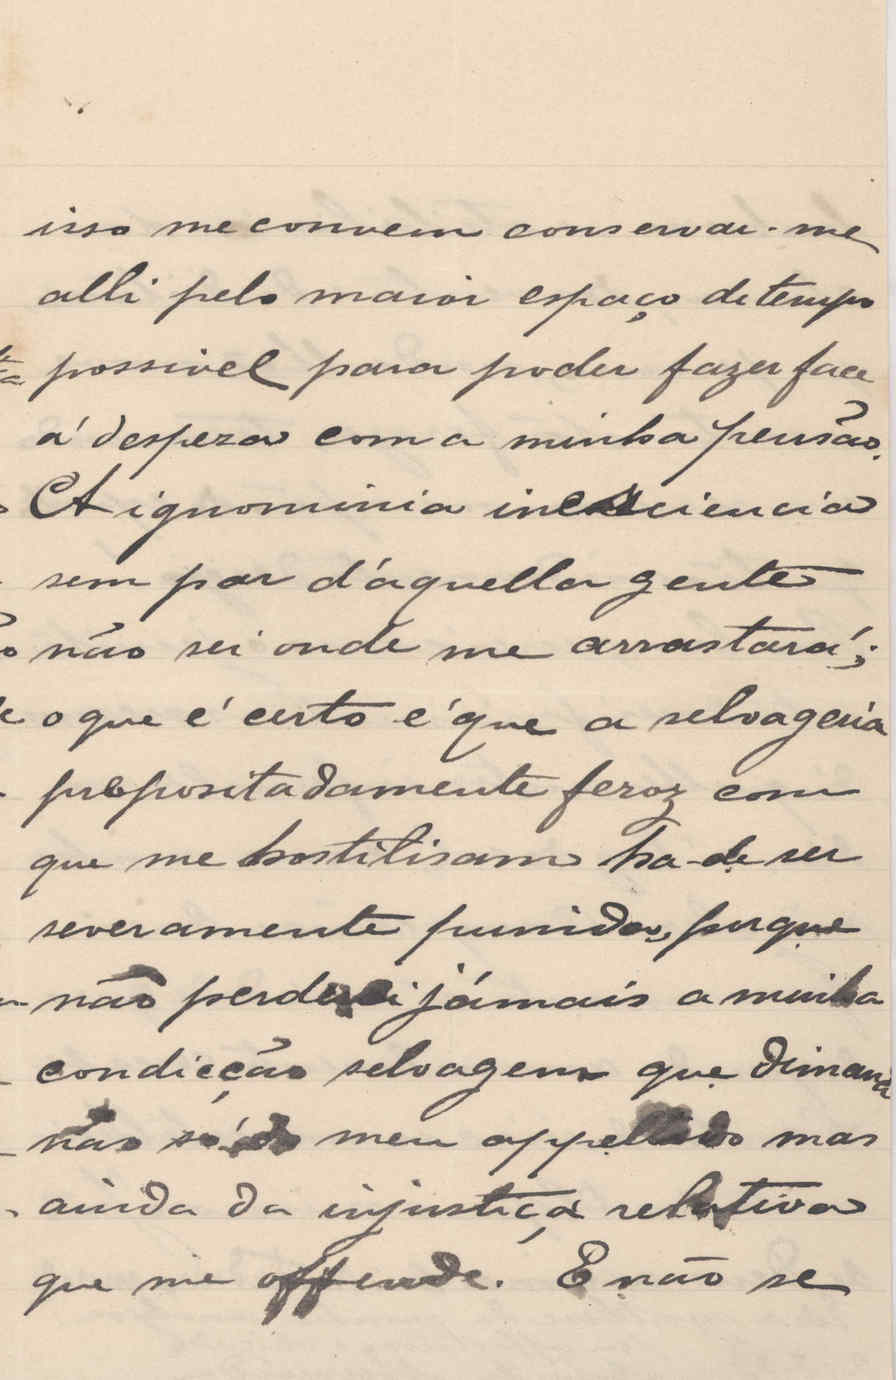 isso me convem conservar-me
alli pelo maior espaço de tempo
possivel para poder fazer face
á despeza com a minha pensão.
A ignominia insciencia
sem par d'aquella gente
não sei onde me arrastará;
o que é certo é que a selvageria
propositadamente feroz com
que me hostilisam ha-de ser
severamente punida, porque
não perderei jámais a minha
condicção selvagem que dimana
não só do meu appellido mas
ainda da injustiça relativa
que me offende. E não se